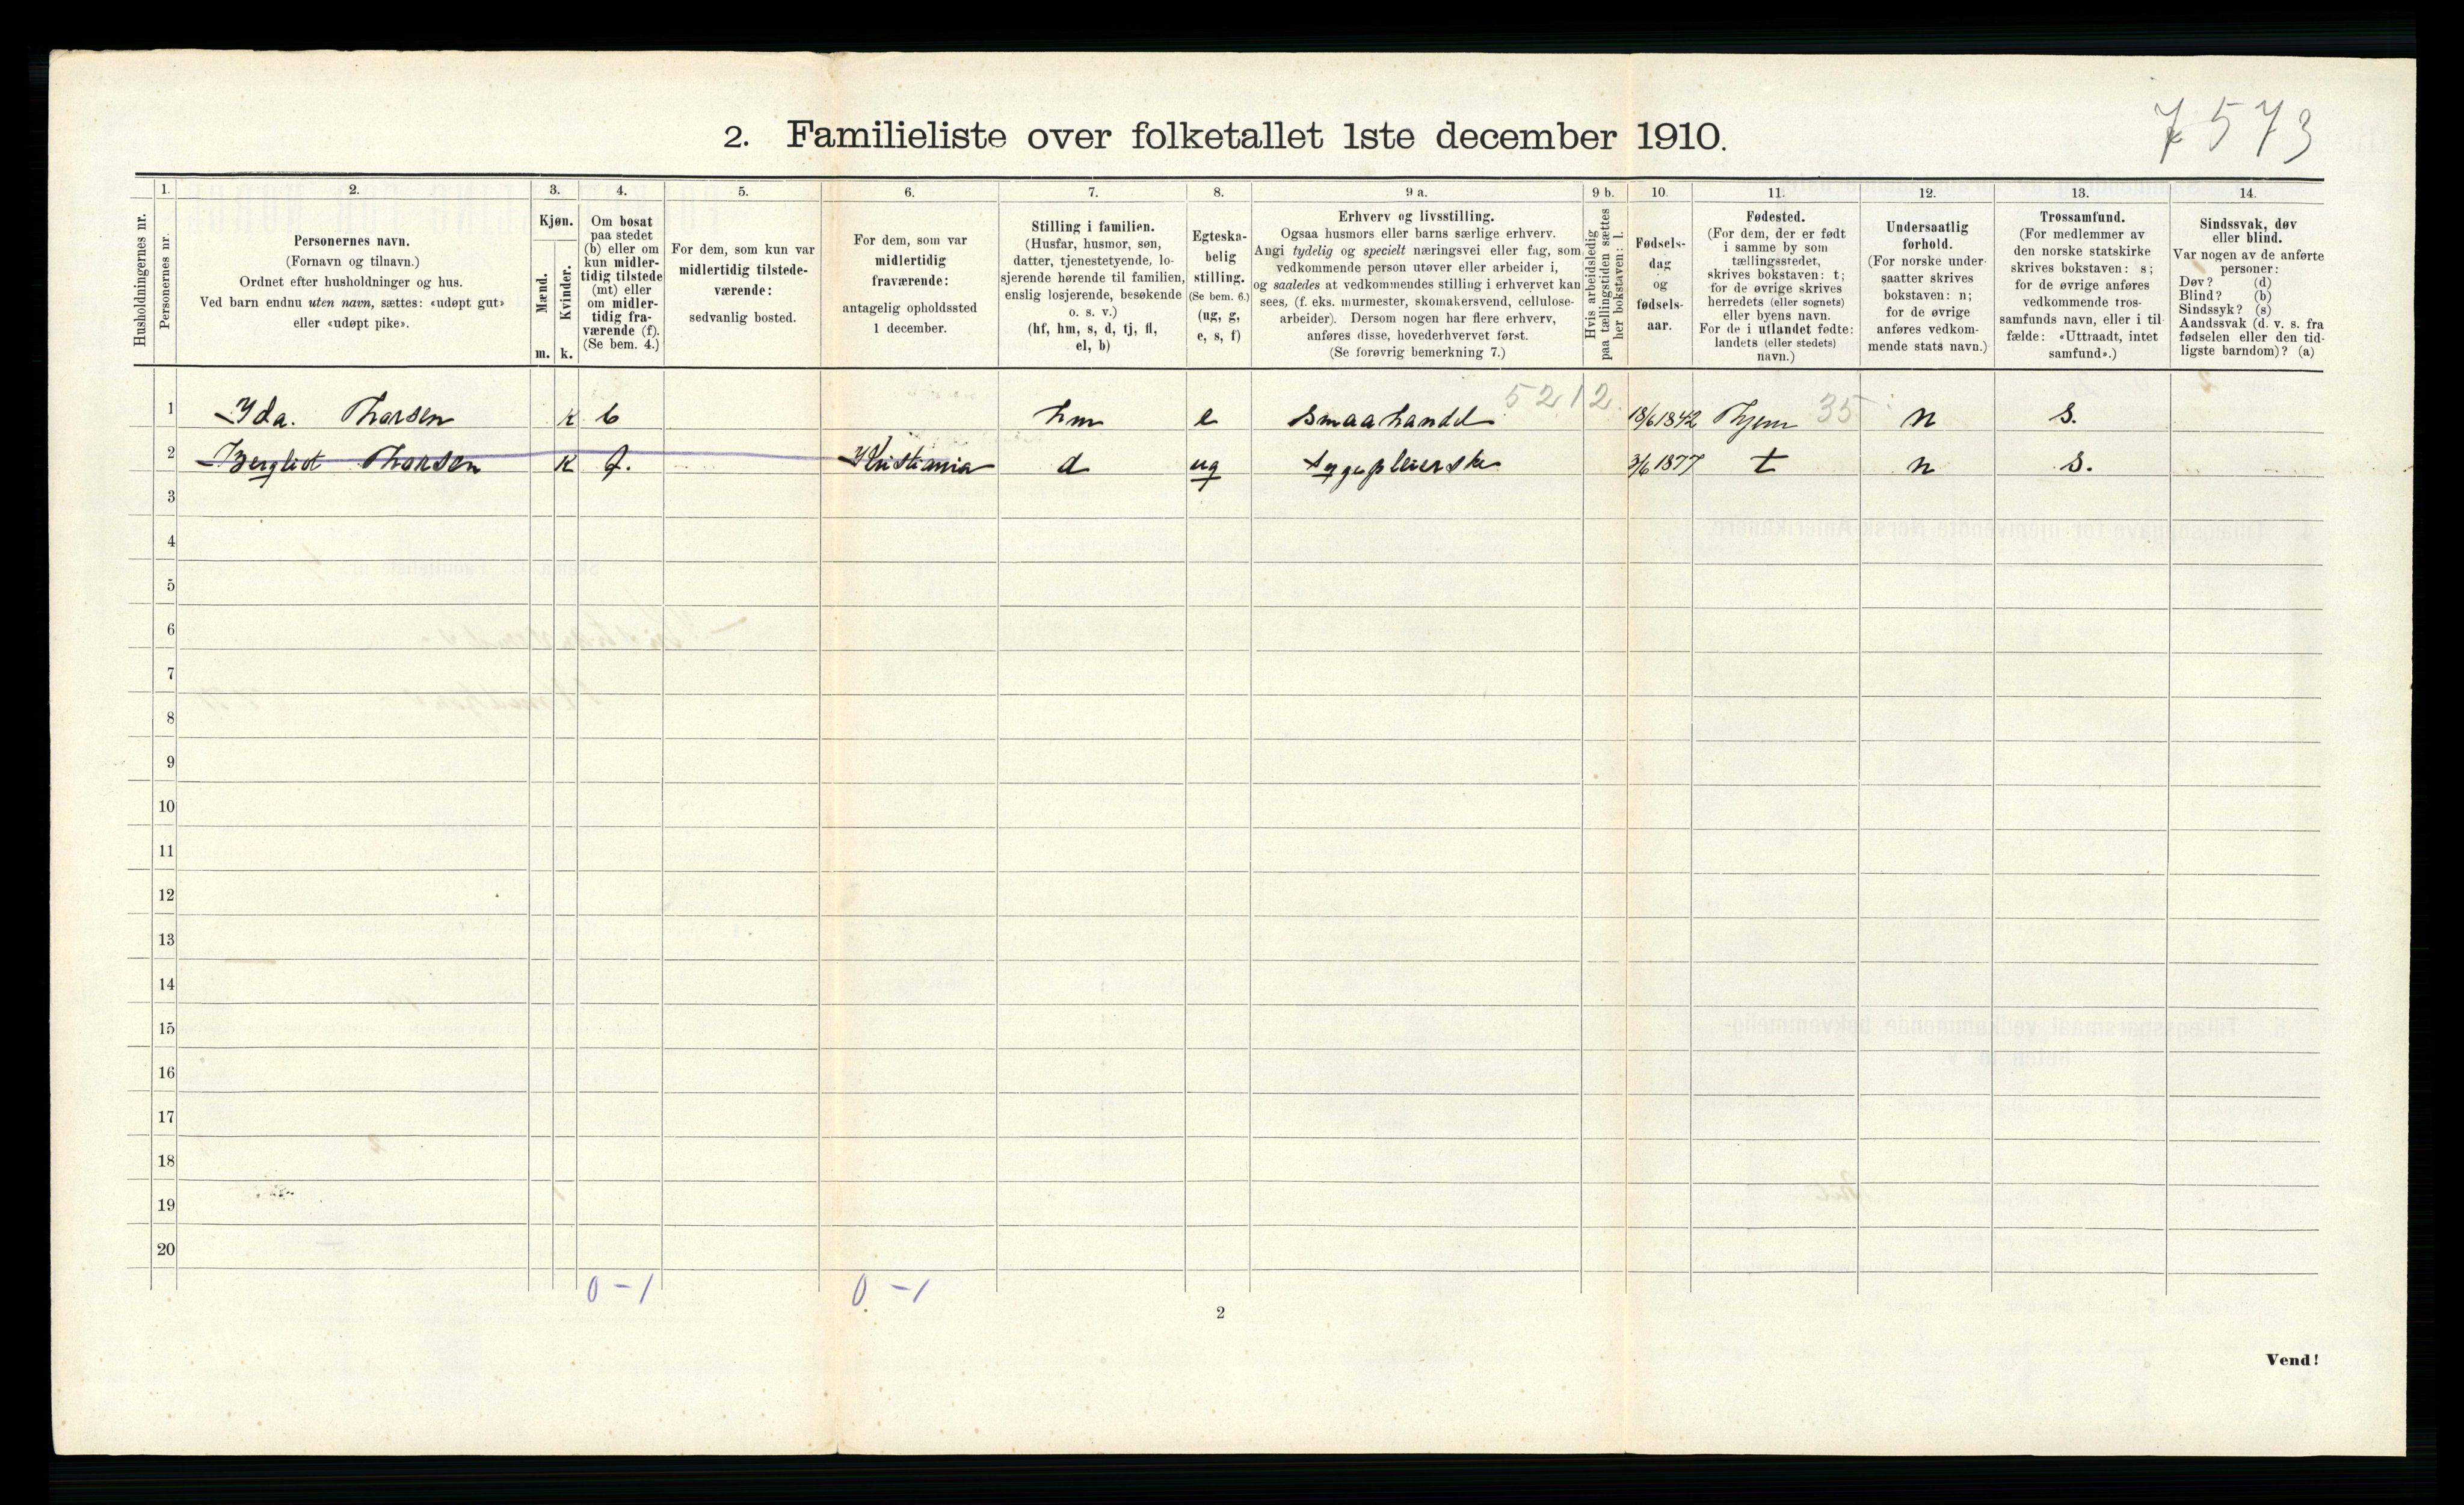 7573
2. Familieliste over folketallet 1ste december 1910.
1. 2. 3. 4. 5. 6. 7. 8. 9 a. 9 b. 10. 11. 12. 13. 14.
Husholdningernes nr.
Personernes nr.
Personernes navn.
(Fornavn og tilnavn.)
Ordnet efter husholdninger og hus.
Ved barn endnu uten navn, sættes: «udøpt gut»
eller «udøpt pike».
Kjøn.
Mænd.
Kvinder.
m. k.
Om bosat
paa stedet
(b) eller om
kun midler-
tidig tilstede
(mt) eller
om midler-
tidig fra-
værende (f).
(Se bem. 4.)
For dem, som kun var
midlertidig tilstede-
værende:
sedvanlig bosted.
For dem, som var
midlertidig
fraværende:
antagelig opholdssted
1 december.
Stilling i familien.
(Husfar, husmor, søn,
datter, tjenestetyende, lo-
sjerende hørende til familien,
enslig losjerende, besøkende
o. s. v.)
(hf, hm, s, d, tj, fl,
el, b)
Egteska-
belig
stilling.
(Se bem. 6.)
(ug, g,
e, s, f)
Erhverv og livsstilling.
Ogsaa husmors eller barns særlige erhverv.
Angi tydelig og specielt næringsvei eller fag, som
vedkommende person utøver eller arbeider i,
og saaledes at vedkommendes stilling i erhvervet kan
sees, (f. eks. murmester, skomakersvend, cellulose-
arbeider). Dersom nogen har flere erhverv,
anføres disse, hovederhvervet først.
(Se forøvrig bemerkning 7.)
Hvis arbeidsledig
paa tællingstiden sættes
her bokstaven: l.
Fødsels-
dag
og
fødsels-
aar.
Fødested.
(For dem, der er født
i samme by som
tællingsstedet,
skrives bokstaven: t;
for de øvrige skrives
herredets (eller sognets)
eller byens navn.
For de i utlandet fødte:
landets (eller stedets)
navn.)
Undersaatlig
forhold.
(For norske under-
saatter skrives
bokstaven: n;
for de øvrige
anføres vedkom-
mende stats navn.)
Trossamfund.
(For medlemmer av
den norske statskirke
skrives bokstaven: s;
for de øvrige anføres
vedkommende tros-
samfunds navn, eller i til-
fælde: «Uttraadt, intet
samfund».)
Sindssvak, døv
eller blind.
Var nogen av de anførte
personer:
Døv? (d)
Blind? (b)
Sindssyk? (s)
Aandssvak (d. v. s. fra
fødselen eller den tid-
ligste barndom)? (a)
1 Yda. Thorsen K b hm e Smaahandel 5212 18/6 1842 35 n s.
2 Bergliot Thorsen K f. Kristiania d ug Sygepleierske 3/6 1877 t n s.
3
4
5
6
7
8
9
10
11
12
13
14
15
16
17
18
19
20
0-1 0-1
2
Vend!